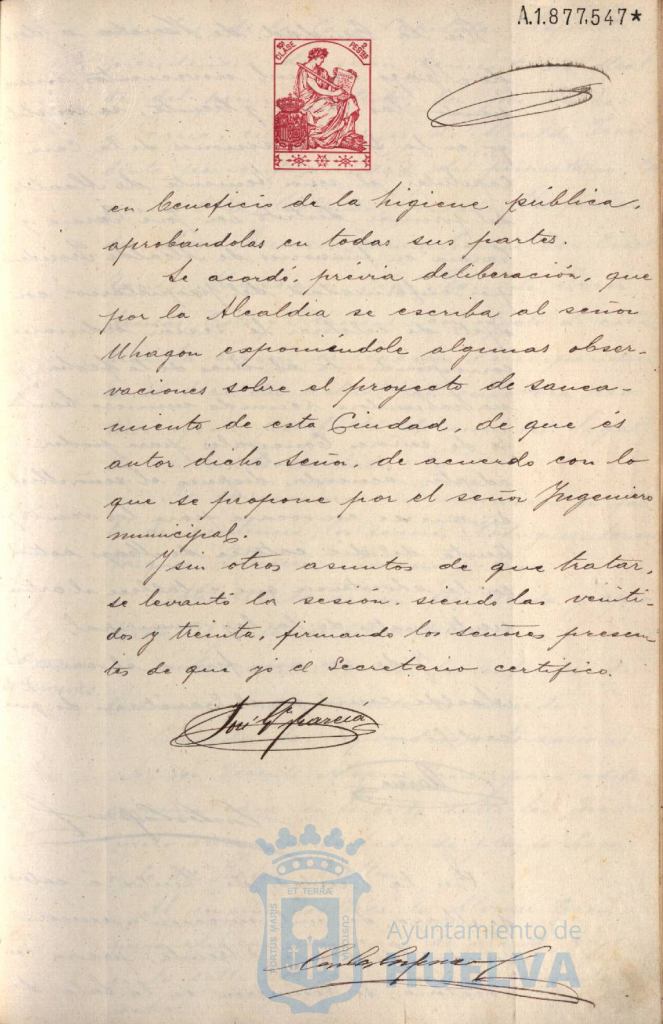 A.1.877.547*
10ª CLASE
2 PESTAS
en beneficio de la higiene pública,
aprobándolas en todas sus partes.
Se acordó, prévia deliberación, que
por la Alcaldia se escriba al señor
Uhagon exponiéndole algunas obser-
vaciones sobre el proyecto de sanea-
miento de esta Ciudad, de que és
autor dicho señor, de acuerdo con lo
que se propone por el señor Ingeniero
municipal.
Y sin otros asuntos de que tratar,
se levantó la sesión, siendo las veinti-
dos y treinta, firmando los señores presen-
tes de que yó el Secretario certifico.
José Gª García
PORTUS MARIS ET TERRÆ CUSTODIA
Ayuntamiento de
HUELVA